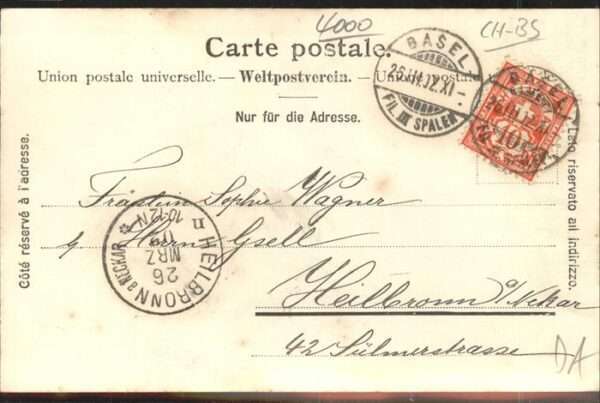 4000
CH-BS
Carte postale.
Union postale universelle. — Weltpostverein. — Unione postale
Nur für die Adresse.
BASEL
26.III.02.XI-
FIL. III SPALEN
BASEL
10
Côté réservé à l'adresse.
Lato riservato all indirizzo.
Fräulein Sophie Wagner
Herrn Gsell
Heilbronn a/Neckar
42 Sülmerstrasse
HEILBRONN a NECKAR
26
MRZ
10-12N
II
DA